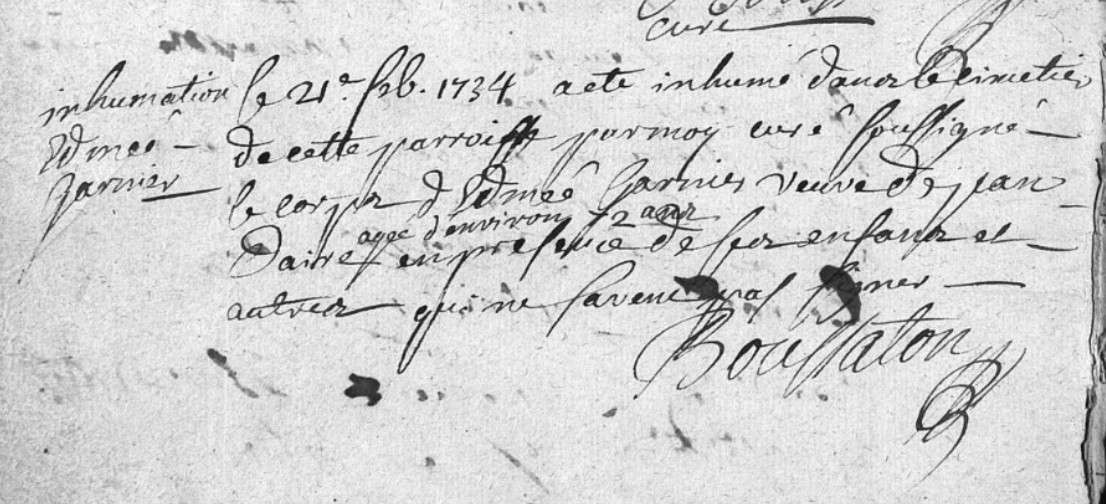 curé
inhumation
Edmeé
garnier
le 21e feb. 1734 a eté inhumé dans le cimetier
de cette parroisse par moy curé soussigné
le corps d Edmeé Garnier veuve de jean
agée d'environ 72 ans
Daire en presence de ses enfans et
autres qui ne savent pas signer
Boussaton